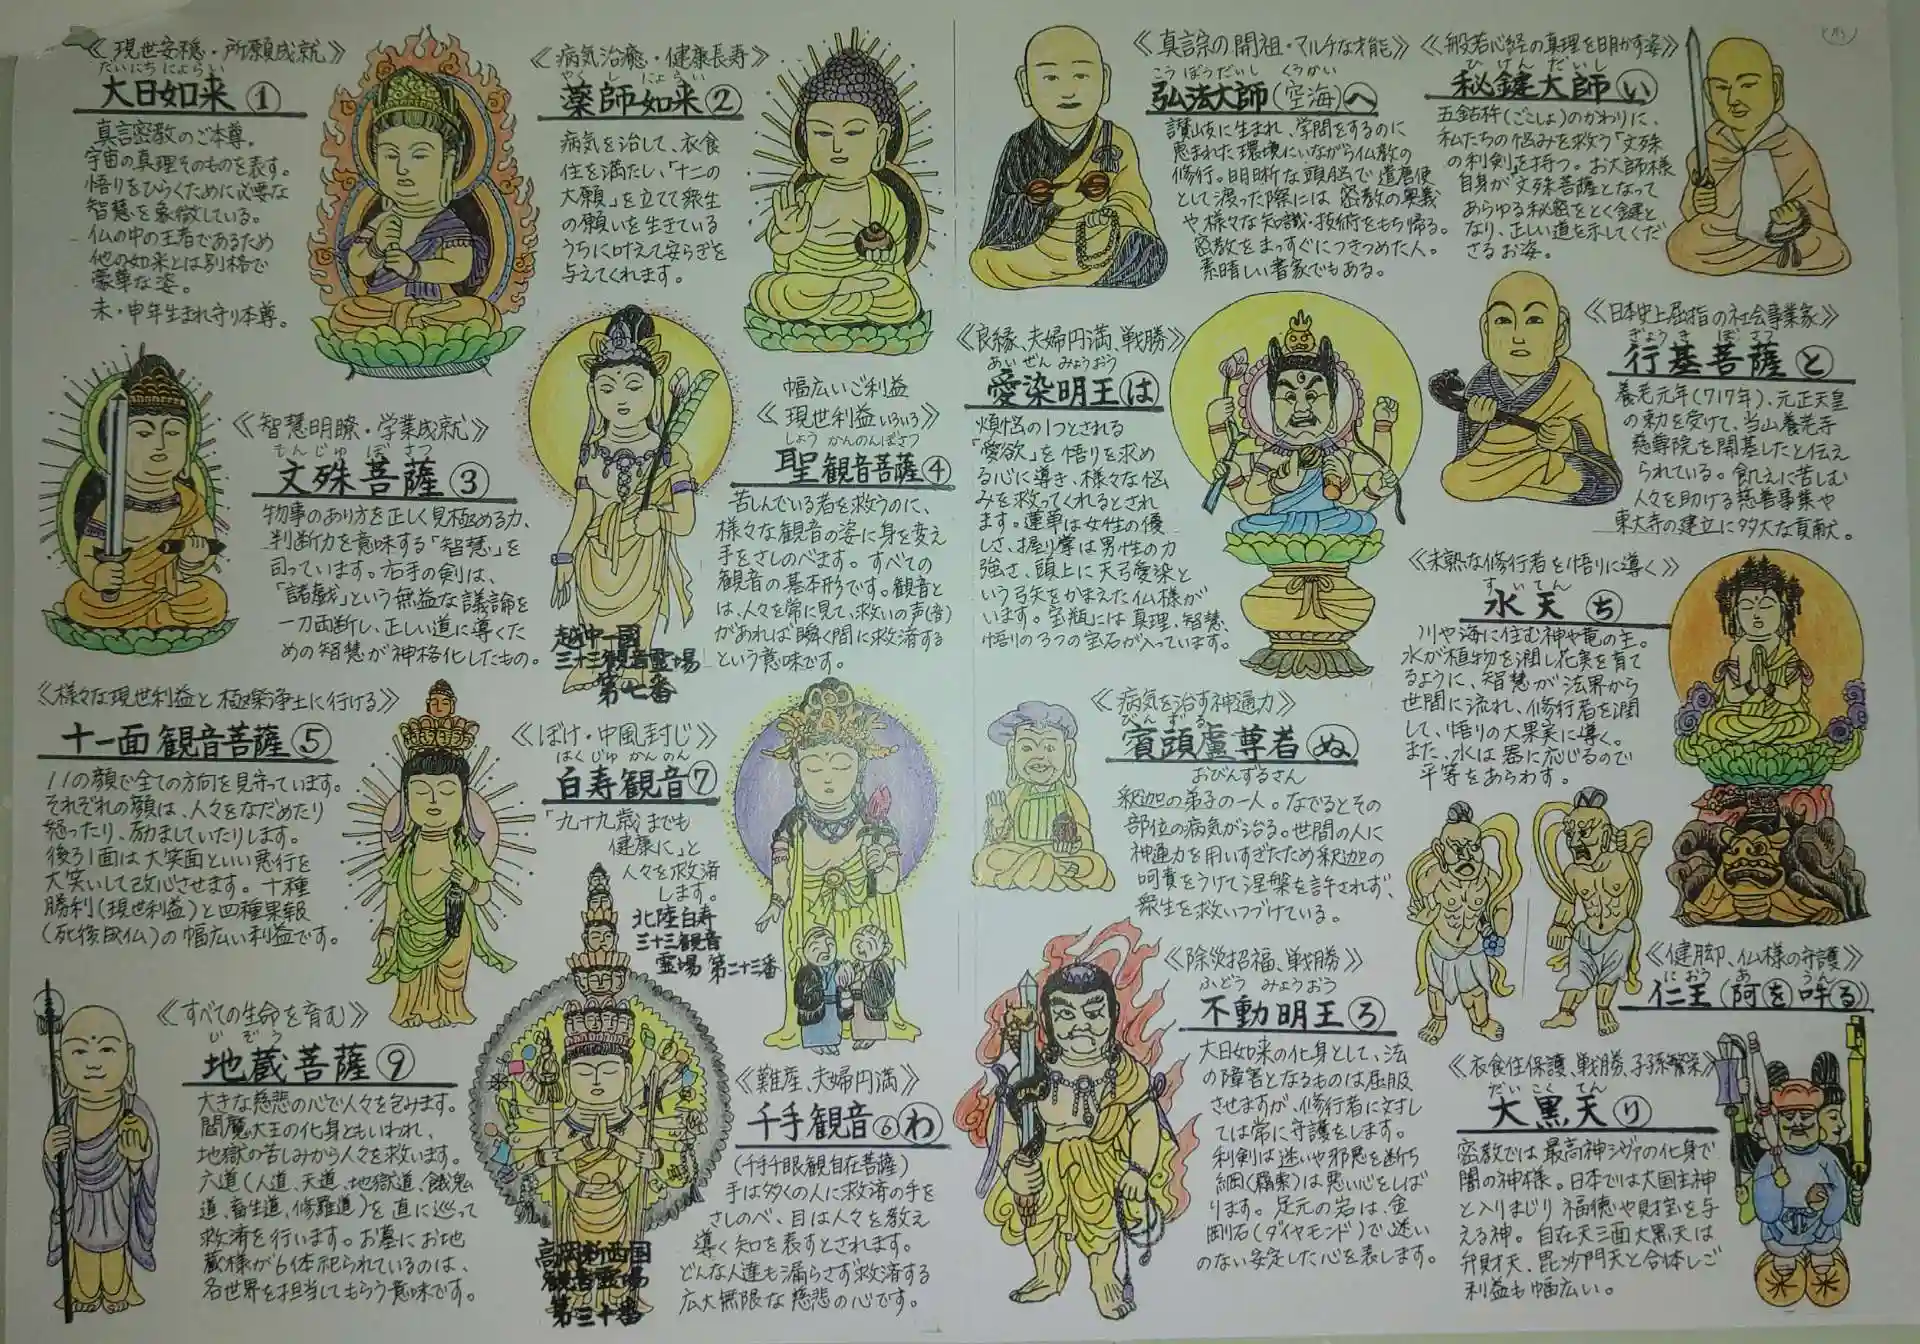 《現世安穏・所願成就》
だいにちにょらい
大日如来①
真言密教のご本尊。
宇宙の真理そのものを表す。
悟りをひらくために必要な
智慧を象徴している。
仏の中の王者であるため
他の如来とは別格で
豪華な姿。
未・申年生まれ守り本尊。
《病気治癒・健康長寿》
やくしにょらい
薬師如来②
病気を治して、衣食
住を満たし、「十二の
大願」を立てて衆生
の願いを生きている
うちに叶えて安らぎを
与えてくれます。
《智慧明瞭・学業成就》
もんじゅぼさつ
文殊菩薩③
物事のあり方を正しく見極める力、
判断力を意味する「智慧」を
司っています。右手の剣は、
「諸戯」という無益な議論を
一刀両断し、正しい道に導くた
めの智慧が神格化したもの。
幅広いご利益
《現世利益いろいろ》
しょうかんのんぼさつ
聖観音菩薩④
苦しんでいる者を救うのに、
様々な観音の姿に身を変え
手をさしのべます。すべての
観音の基本形です。観音と
は、人々を常に見て、救いの声(音)
があれば瞬く間に救済する
という意味です。
越中一國
三十三観音霊場
第七番
《様々な現世利益と極楽浄土に行ける》
十一面観音菩薩⑤
11の顔で全ての方向を見守っています。
それぞれの顔は、人々をなだめたり
怒ったり、励ましていたりします。
後ろ1面は大笑面といい悪行を
大笑いして改心させます。十種
勝利(現世利益)と四種果報
(死後成仏)の幅広い利益です。
《ぼけ・中風封じ》
はくじゅかんのん
白寿観音⑦
「九十九歳までも
健康に」と
人々を救済
します。
北陸白寿
三十三観音
霊場 第二十三番
《すべての生命を育む》
じぞう
地蔵菩薩⑨
大きな慈悲の心で人々を包みます。
閻魔大王の化身ともいわれ、
地獄の苦しみから人々を救います。
六道(人道、天道、地獄道、餓鬼
道、畜生道、修羅道)を直に巡って
救済を行います。お墓にお地
蔵様が6体祀られているのは、
各世界を担当してもらう意味です。
《難産、夫婦円満》
千手観音⑥わ
(千手千眼観自在菩薩)
手は多くの人に救済の手を
さしのべ、目は人々を教え
導く知を表すとされます。
どんな人達も漏らさず救済する
広大無限な慈悲の心です。
高岡新西国
観音霊場
第三十番
《真言宗の開祖・マルチな才能》
こうぼうだいし くうかい
弘法大師(空海)へ
讃岐に生まれ、学問をするのに
恵まれた環境にいながら仏教の
修行。明晰な頭脳で遣唐使
として渡った際には密教の奥義
や様々な知識・技術をもち帰る。
密教をまっすぐにつきつめた人。
素晴しい書家でもある。
《般若心経の真理を明かす姿》
ひけんだいし
秘鍵大師い
五鈷杵(ごこしょ)のかわりに、
私たちの悩みを救う「文殊
の利剣」を持つ。お大師様
自身が文殊菩薩となって
あらゆる秘密をとく鍵と
なり、正しい道を示してくだ
さるお姿。
《良縁、夫婦円満、戦勝》
あいぜんみょうおう
愛染明王は
煩悩の1つとされる
「愛欲」を悟りを求め
る心に導き、様々な悩
みを救ってくれるとされ
ます。蓮華は女性の優
しさ、握り掌は男性の力
強さ、頭上に天弓愛染と
いう弓矢をかまえた仏様が
います。宝瓶には真理、智慧、
悟りの3つの宝石が入っています。
《日本史上屈指の社会事業家》
ぎょうきぼさつ
行基菩薩と
養老元年(717年)、元正天皇
の勅を受けて、当山養老寺
慈尊院を開基したと伝え
られている。飢えに苦しむ
人々を助ける慈善事業や
東大寺の建立に多大な貢献。
《未熟な修行者を悟りに導く》
すいてん
水天ち
川や海に住む神や竜の主。
水が植物を潤し花実を育て
るように、智慧が法界から
世間に流れ、修行者を潤
して、悟りの大果実に導く。
また、水は器に応じるので
平等をあらわす。
《病気を治す神通力》
びんずる
賓頭盧尊者ぬ
おびんずるさん
釈迦の弟子の一人。なでるとその
部位の病気が治る。世間の人に
神通力を用いすぎたため釈迦の
呵責をうけて涅槃を許されず、
衆生を救いつづけている。
《除災招福、戦勝》
ふどうみょうおう
不動明王ろ
大日如来の化身として、法
の障害となるものは屈服
させますが、修行者に対し
ては常に守護をします。
利剣は迷いや邪悪を断ち
綱(羂索)は悪い心をしば
ります。足元の岩は、金
剛石(ダイヤモンド)で、迷い
のない安定した心を表します。
《健脚、仏様の守護》
におう あ うん
仁王(阿を吽る)
《衣食住保護、戦勝、子孫繁栄》
だいこくてん
大黒天り
密教では最高神シヴァの化身で
闇の神様。日本では大国主神
と入りまじり福徳や財宝を与
える神。自在天三面大黒天は
弁財天、毘沙門天と合体しご
利益も幅広い。